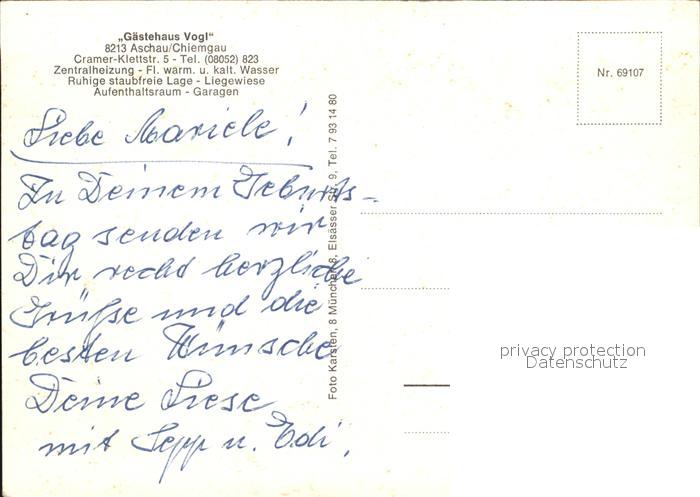 „Gästehaus Vogl"
8213 Aschau/Chiemgau
Cramer-Klettstr. 5 - Tel. (08052) 823
Zentralheizung - Fl. warm. u. kalt. Wasser
Ruhige staubfreie Lage - Liegewiese
Aufenthaltsraum - Garagen
Nr. 69107
Liebe Mariele!
Zu Deinem Geburts-
tag senden wir
Dir recht herzliche
Grüße und die
besten Wünsche
Deine Liese
mit Sepp u. Edi.
Foto Karsten, 8 München 8, Elsässer Str. 9, Tel. 7 93 14 80
privacy protection
Datenschutz